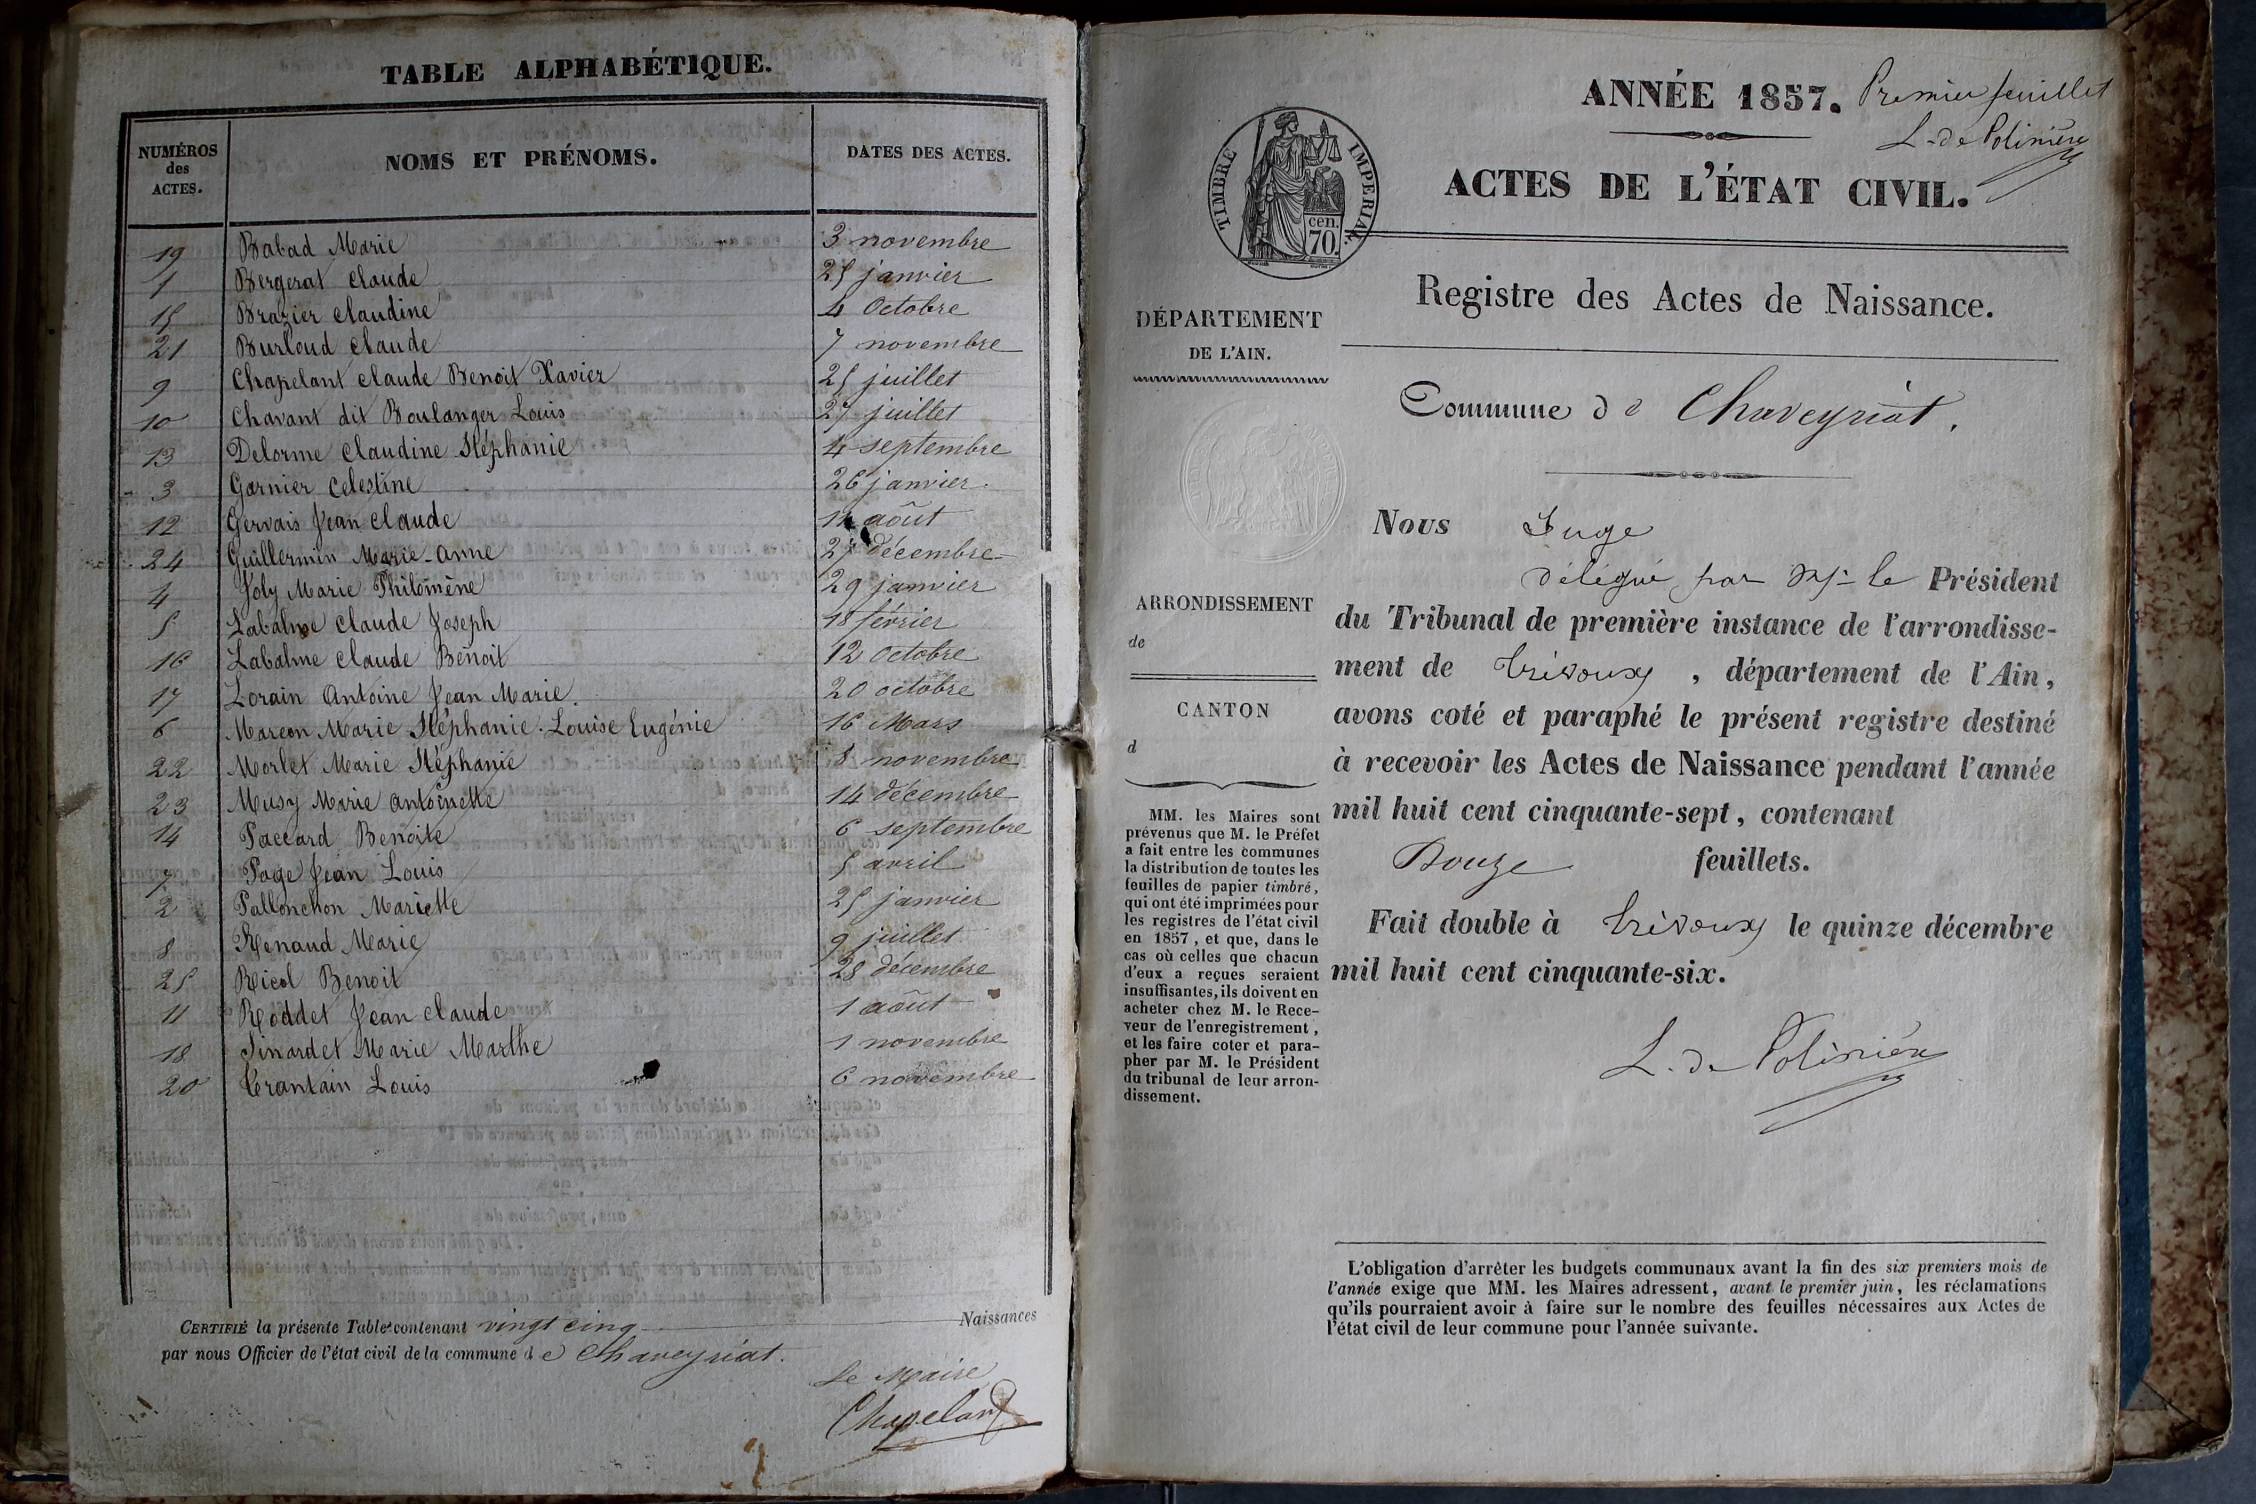 TABLE ALPHABÉTIQUE.
NUMÉROS des ACTES. NOMS ET PRÉNOMS. DATES DES ACTES.
19 Babad Marie 3 novembre
1 Bergerat Claude 25 janvier
15 Brazier Claudine 4 Octobre
21 Burloud Claude 7 novembre
9 Chapelant Claude Benoit Xavier 25 juillet
10 Chavant dit Boulanger Louis 27 juillet
13 Delorme Claudine Stéphanie 4 septembre
3 Garnier Celestine 26 janvier.
12 Gervais Jean Claude août
24 Guillermin Marie-Anne 27 décembre
4 Joly Marie Philomène 29 janvier
5 Labalme Claude Joseph 18 février
16 Labalme Claude Benoit 12 Octobre
17 Lorain Antoine Jean Marie. 20 octobre
6 Marcon Marie Stéphanie. Louise Eugénie 16 Mars
22 Morlet Marie Stéphanie 8 novembre
23 Musy Marie Antoinette 14 décembre
14 Paccard Benoite 6 septembre
7 Page Jean Louis 5 avril
2 Pallonchon Mariette 25 janvier
8 Renaud Marie 9 juillet
25 Ricol Benoit 28 décembre
11 Roddet Jean Claude 1 août
18 Sinardet Marie Marthe 1 novembre
20 Trantain Louis 6 novembre
CERTIFIÉ la présente Table contenant vingt cinq Naissances
par nous Officier de l'état civil de la commune d e Chaveyriat.
Le Maire
Chapelant
ANNÉE 1857. Premier feuillet
L. de Polinière
TIMBRE IMPERIAL
cen.
70.
ACTES DE L'ÉTAT CIVIL.
Registre des Actes de Naissance.
DÉPARTEMENT
DE L'AIN.
Commune d e Chaveyriat.
Nous Juge
délégué par Mr le Président
du Tribunal de première instance de l'arrondisse-
ment de Trévoux, département de l'Ain,
avons coté et paraphé le présent registre destiné
à recevoir les Actes de Naissance pendant l'année
mil huit cent cinquante-sept, contenant
Douze feuillets.
Fait double à Trévoux le quinze décembre
mil huit cent cinquante-six.
L. de Polinière
ARRONDISSEMENT
de
CANTON
d
MM. les Maires sont
prévenus que M. le Préfet
a fait entre les communes
la distribution de toutes les
feuilles de papier timbré,
qui ont été imprimées pour
les registres de l'état civil
en 1857, et que, dans le
cas où celles que chacun
d'eux a reçues seraient
insuffisantes, ils doivent en
acheter chez M. le Rece-
veur de l'enregistrement,
et les faire coter et para-
pher par M. le Président
du tribunal de leur arron-
dissement.
L'obligation d'arrêter les budgets communaux avant la fin des six premiers mois de
l'année exige que MM. les Maires adressent, avant le premier juin, les réclamations
qu'ils pourraient avoir à faire sur le nombre des feuilles nécessaires aux Actes de
l'état civil de leur commune pour l'année suivante.